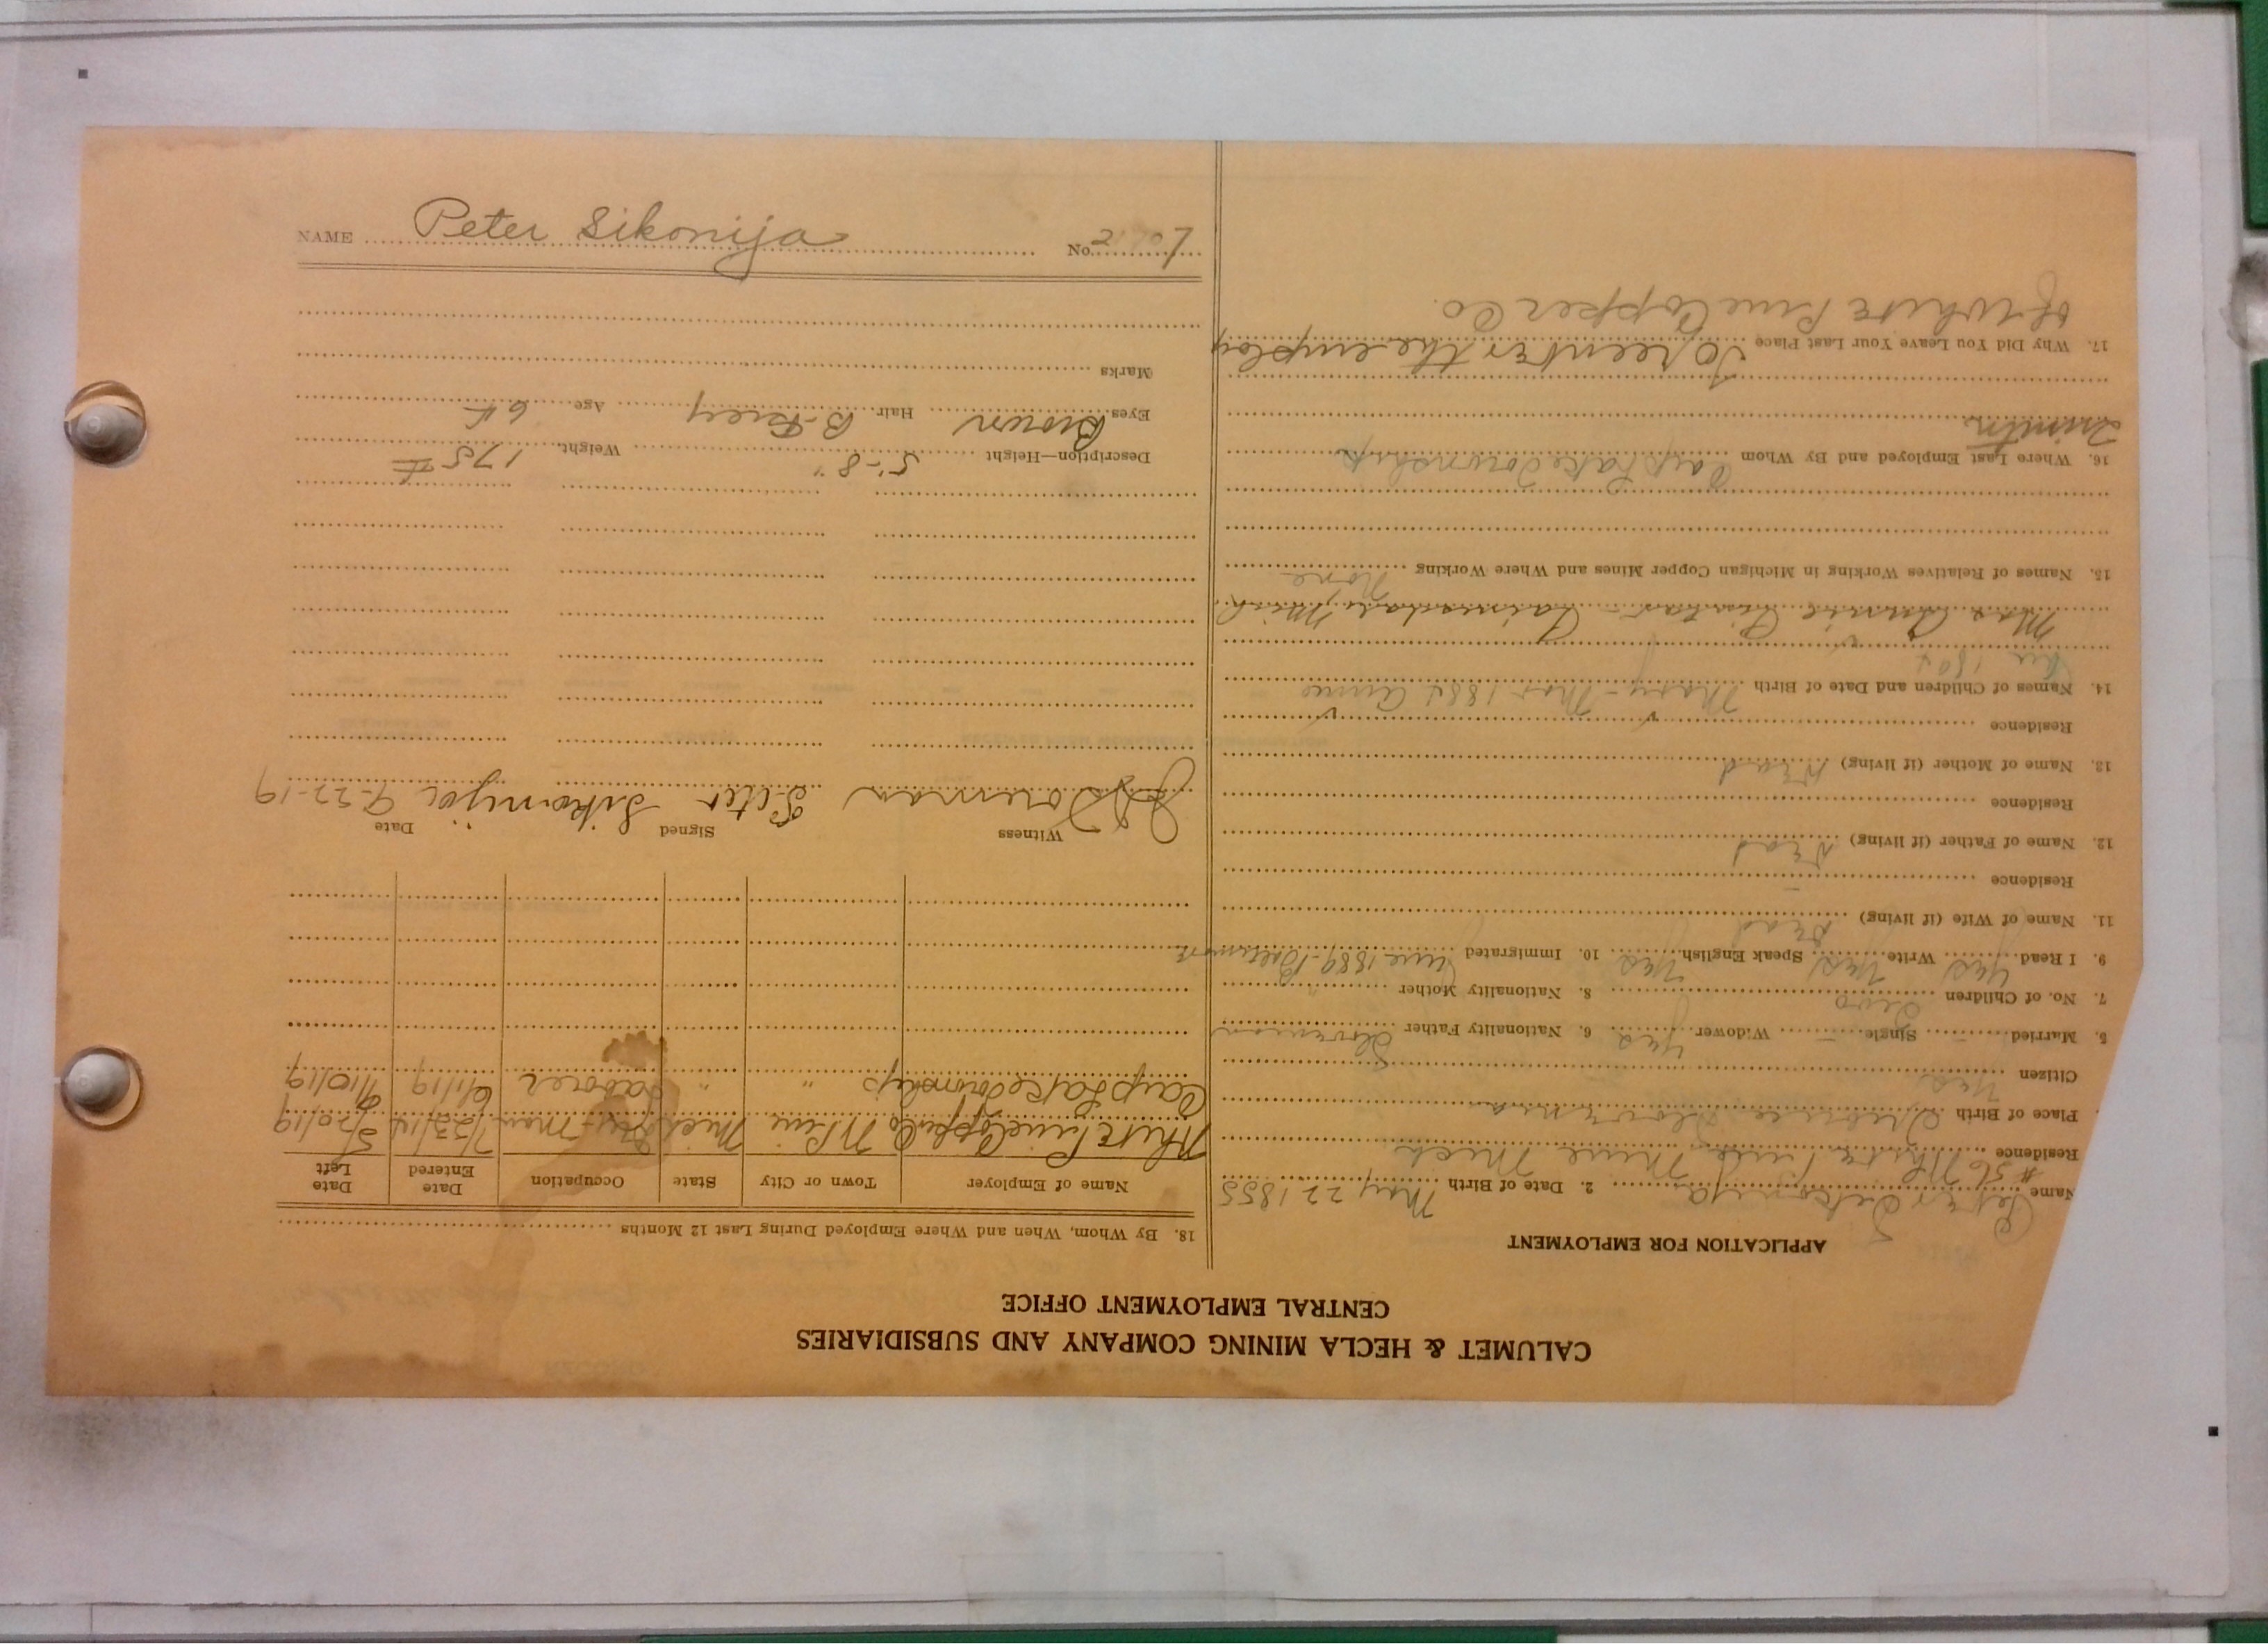 CALUMET & HECLA MINING COMPANY AND SUBSIDIARIES
CENTRAL EMPLOYMENT OFFICE
APPLICATION FOR EMPLOYMENT
Name Peter Sikonija 2. Date of Birth May 22 1855
Residence #56 White Pine Mine Mich
Place of Birth
Citizen Yes
5. Married – Single – Widower Yes 6. Nationality Father Slovenian
7. No. of Children Two 8. Nationality Mother "
9. I Read Yes Write Yes Speak English Yes 10. Immigrated June 1889
11. Name of Wife (if living) Dead
Residence –
12. Name of Father (if living) Dead
Residence
13. Name of Mother (if living) Dead
Residence
14. Names of Children and Date of Birth Mary - Mar 1884 Annie
Mrs Annie Mich.
15. Names of Relatives Working in Michigan Copper Mines and Where Working None
16. Where Last Employed and By Whom Carp Lake Township
17. Why Did You Leave Your Last Place To reenter the employ
of White Pine Copper Co.
18. By Whom, When and Where Employed During Last 12 Months
Name of Employer Town or City State Occupation Date Entered Date Left
White Pine Copper Co W Pine Mich Dry-man 7/23/14 5/20/19
Carp Lake Township " " Laborer 6/1/19 9/10/19
Witness Signed Date
Peter Sikonija 9-22-19
Description—Height 5'-8" Weight 175 #
Eyes Brown Hair B-Grey Age 64
Marks
NAME Peter Sikonija No. 7